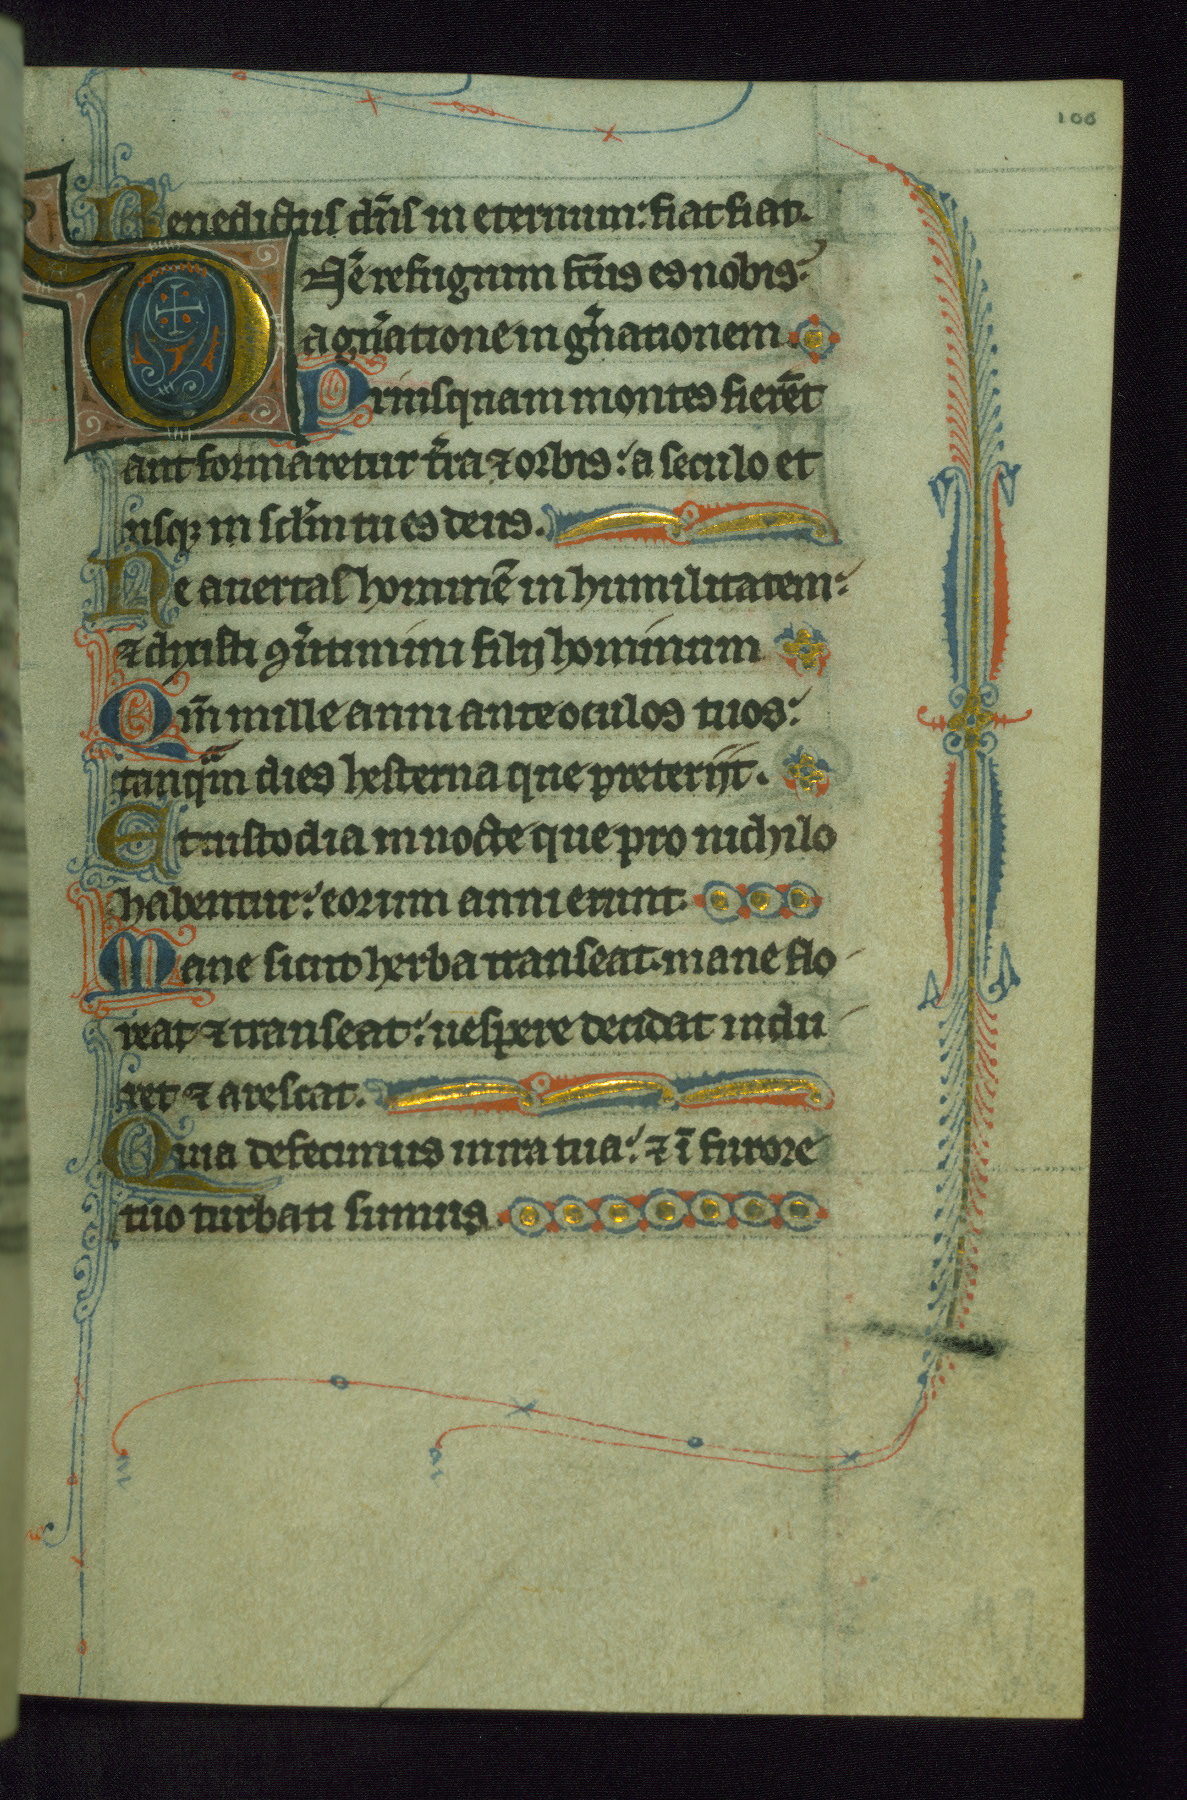 106
Benedictus dn̄s in eternum: fiat fiat.
Dn̄e refugium fc̄us es nobis:
a gn̄atione in gn̄ationem
Priusquam montes fierēt
aut formaretur t̄ra ⁊ orbis: a seculo et
usqꝫ in sc̄lm tu es deus.
Ne auertas hominē in humilitatem:
⁊ dixisti ꝯu̾timini filij hominum
Qm̄ mille anni ante oculos tuos:
tanqm̄ dies hesterna que preterijt.
Et custodia in nocte que pro nichilo
habentur: eorum anni erunt.
Mane sicut herba transeat. mane flo
reat ⁊ transeat: uespere decidat indu
ret ⁊ arescat.
Quia defecimus in ira tua: ⁊ ī furore
tuo turbati sumus.